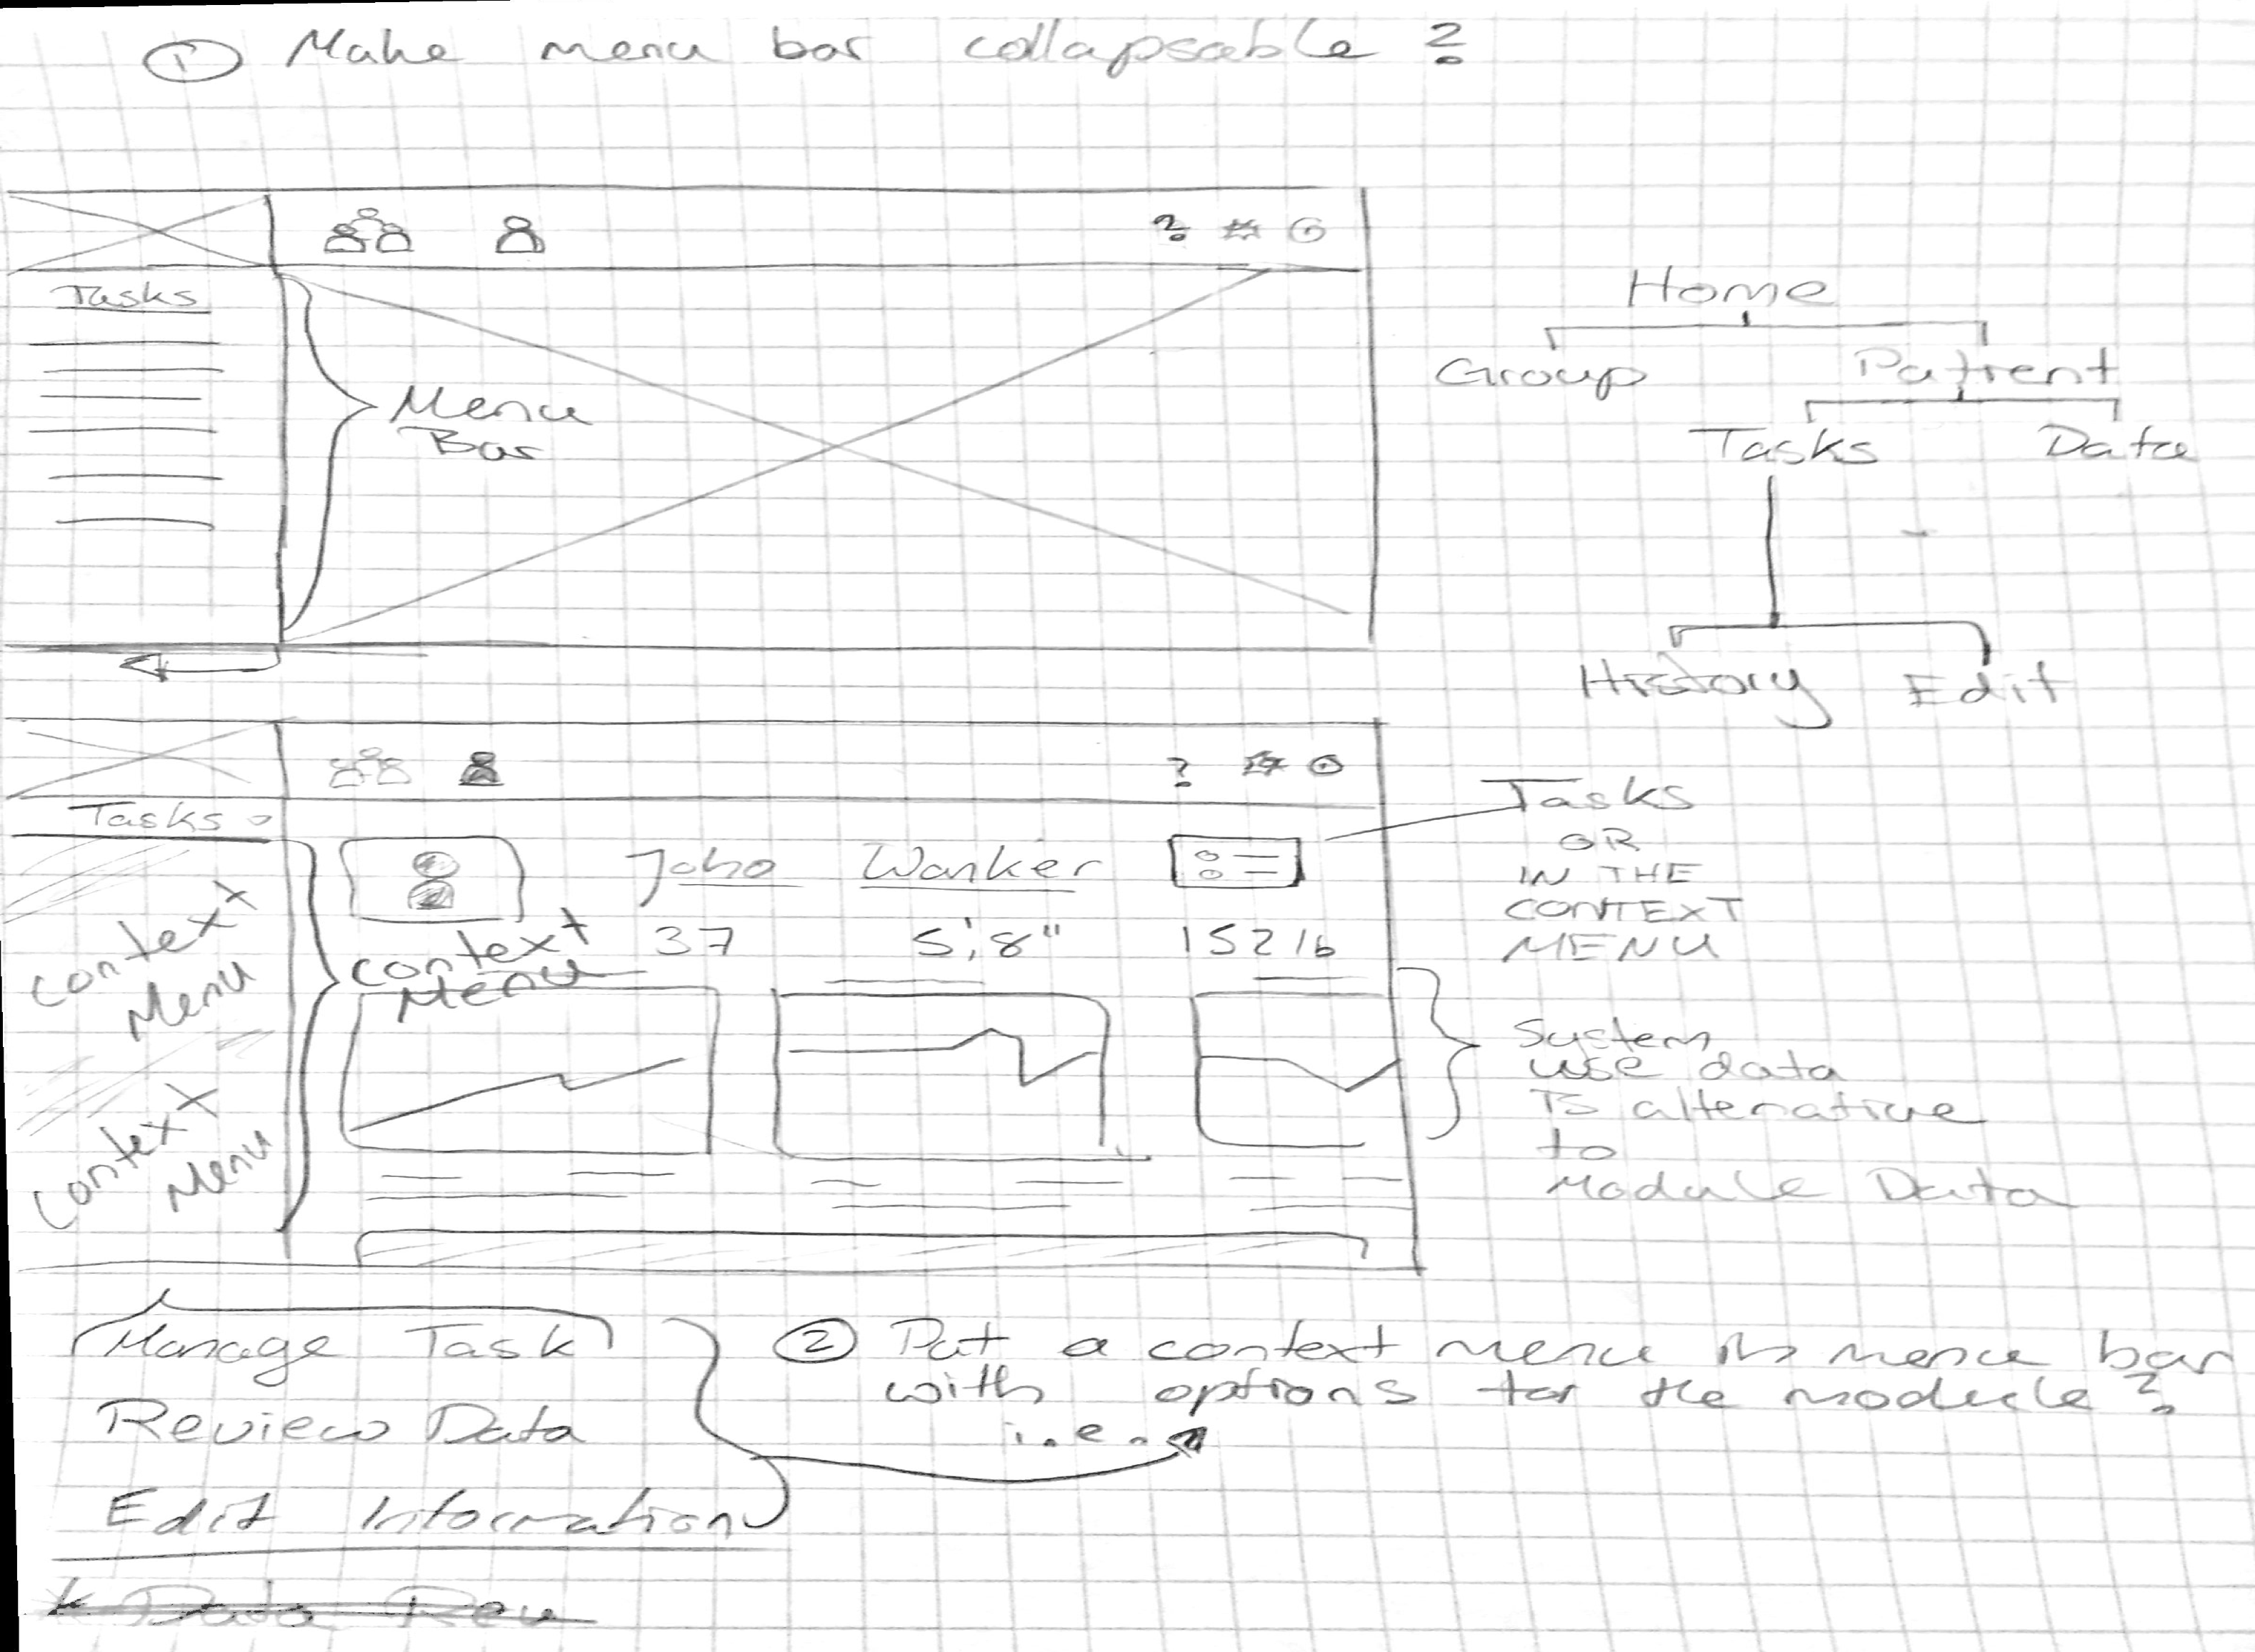 ① Make menu bar collapsable ?
?
Tasks
Menu
Bar
Home
Group Patient
Tasks Data
History Edit
?
Tasks
John Wanker
37 5'8" 152 lb
Context
Menu
Context
Menu
Context
Menu
Tasks
OR
IN THE
CONTEXT
MENU
System
use data
is alternative
to
Module Data
Manage Task
Review Data
Edit Information
② Put a context menu in menu bar
with options for the module ?
i.e.
Data Rev